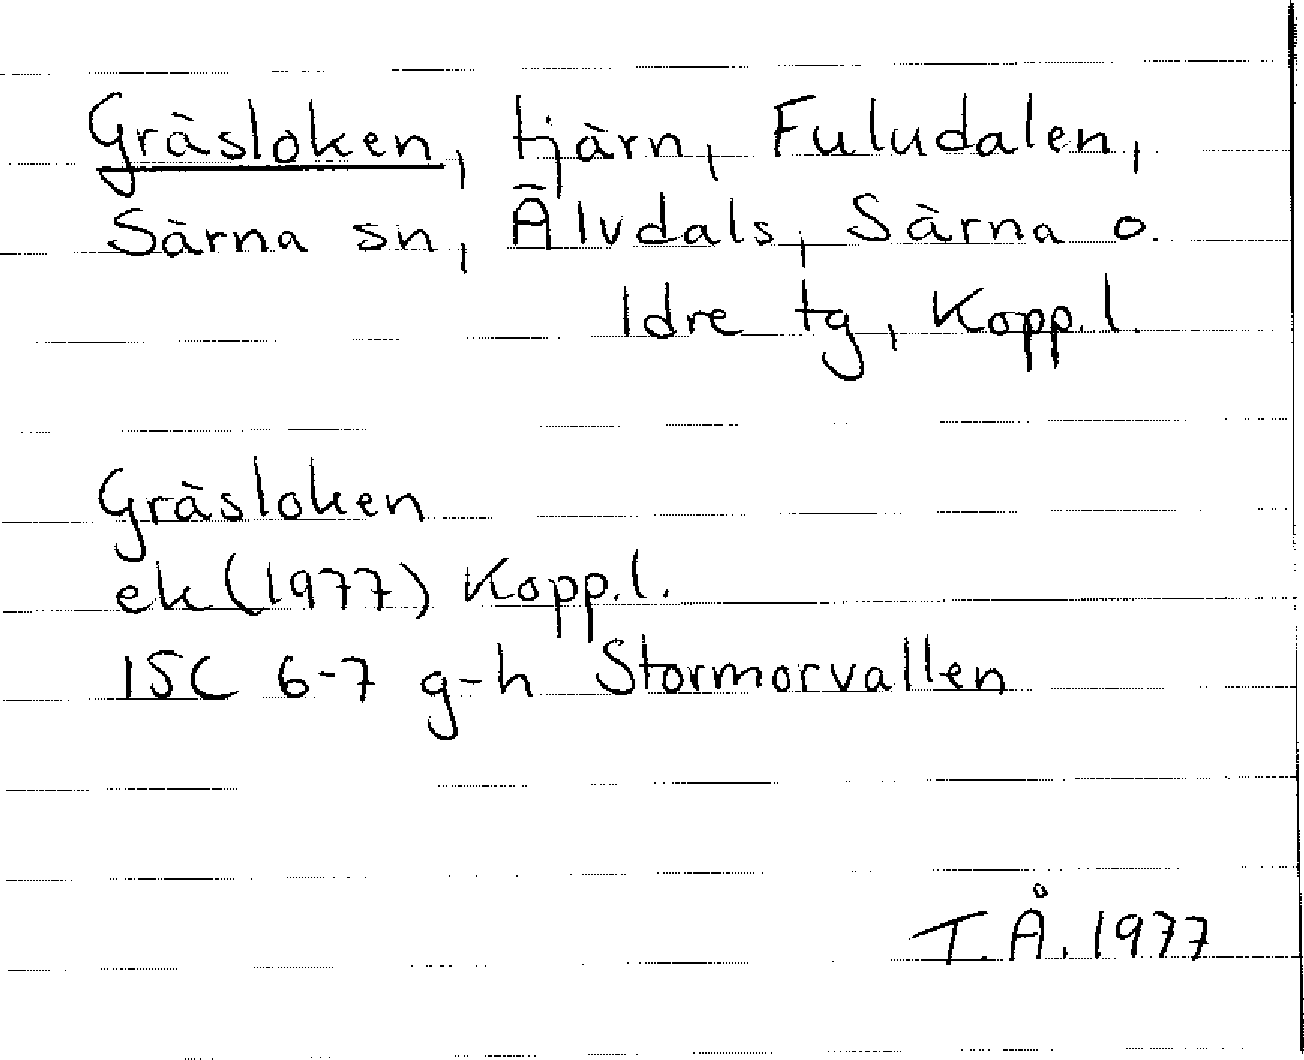 Gräsloken, tjärn, Fuludalen,
Särna sn, Älvdals, Särna o.
Idre tg, Kopp.l.
Gräsloken
ek (1977) Kopp.l.
15C 6-7 g-h Stormorvallen
T.Å. 1977